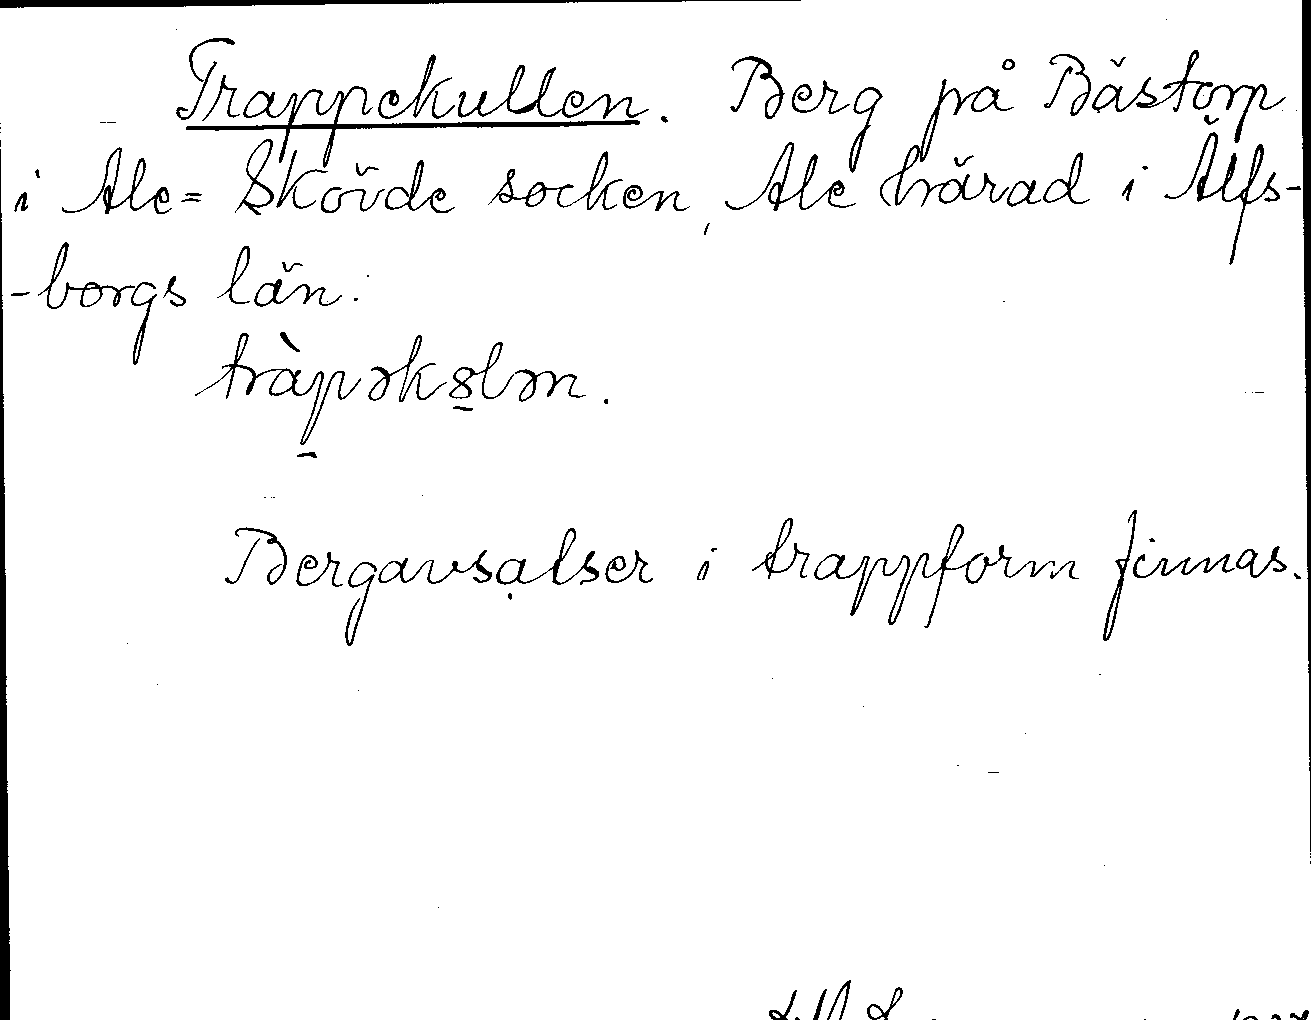 Trappekullen. Berg på Bästorp
i Ale=Skövde socken, Ale härad i Älfs-
-borgs län.
tràpəkələn.
Bergavsatser i trappform finnas.